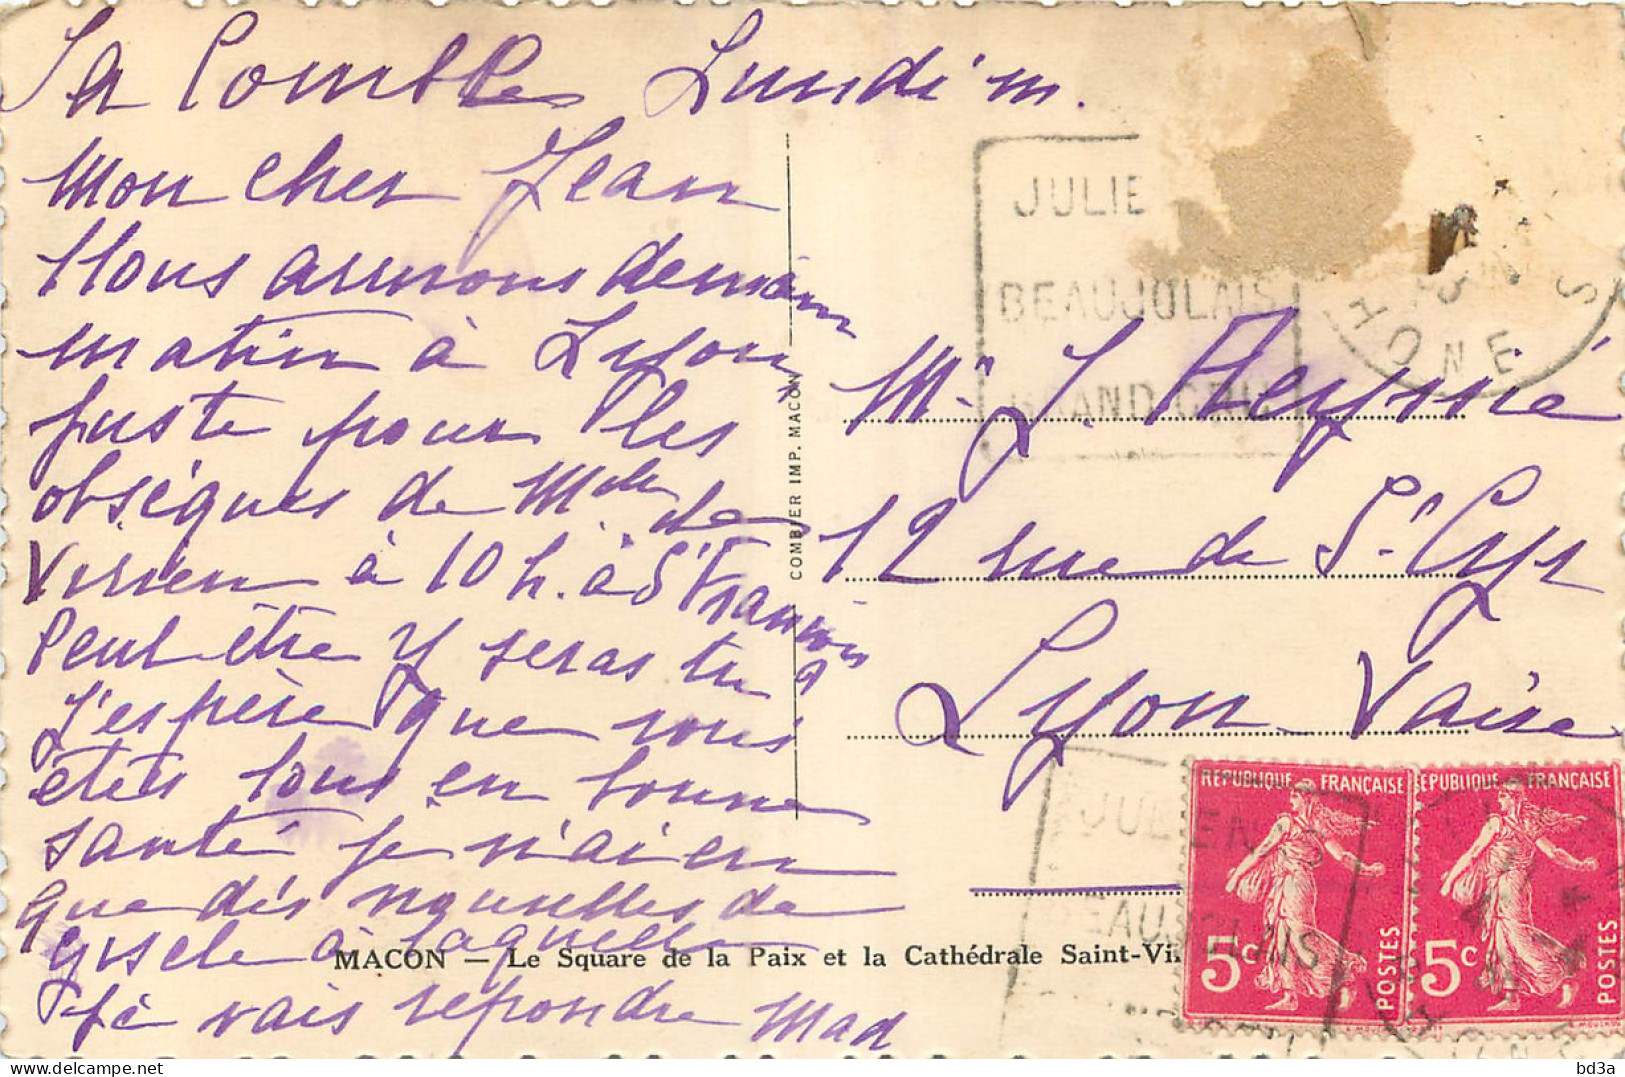 La Combe Lundi m.
Mon cher Jean
Nous arrivons demain
matin à Lyon,
juste pour les
obsèques de Mlle de
Virieu à 10 h. à St François
Peut être y seras tu ?
J'espère que vous
êtes tous en bonne
santé je n'ai eu
que des nouvelles de
Gisele à laquelle
je vais repondre Mad
COMBIER IMP. MACON
JULIE
BEAUJOLAIS
GRAND CRU
RHONE
Mr J. Aeymé
12 rue de St Cyr
Lyon Vaise
REPUBLIQUE FRANÇAISE
5c
POSTES
REPUBLIQUE FRANÇAISE
5c
POSTES
JULIENAS
BEAUJOLAIS
MACON — Le Square de la Paix et la Cathédrale Saint-Vi
bd3a